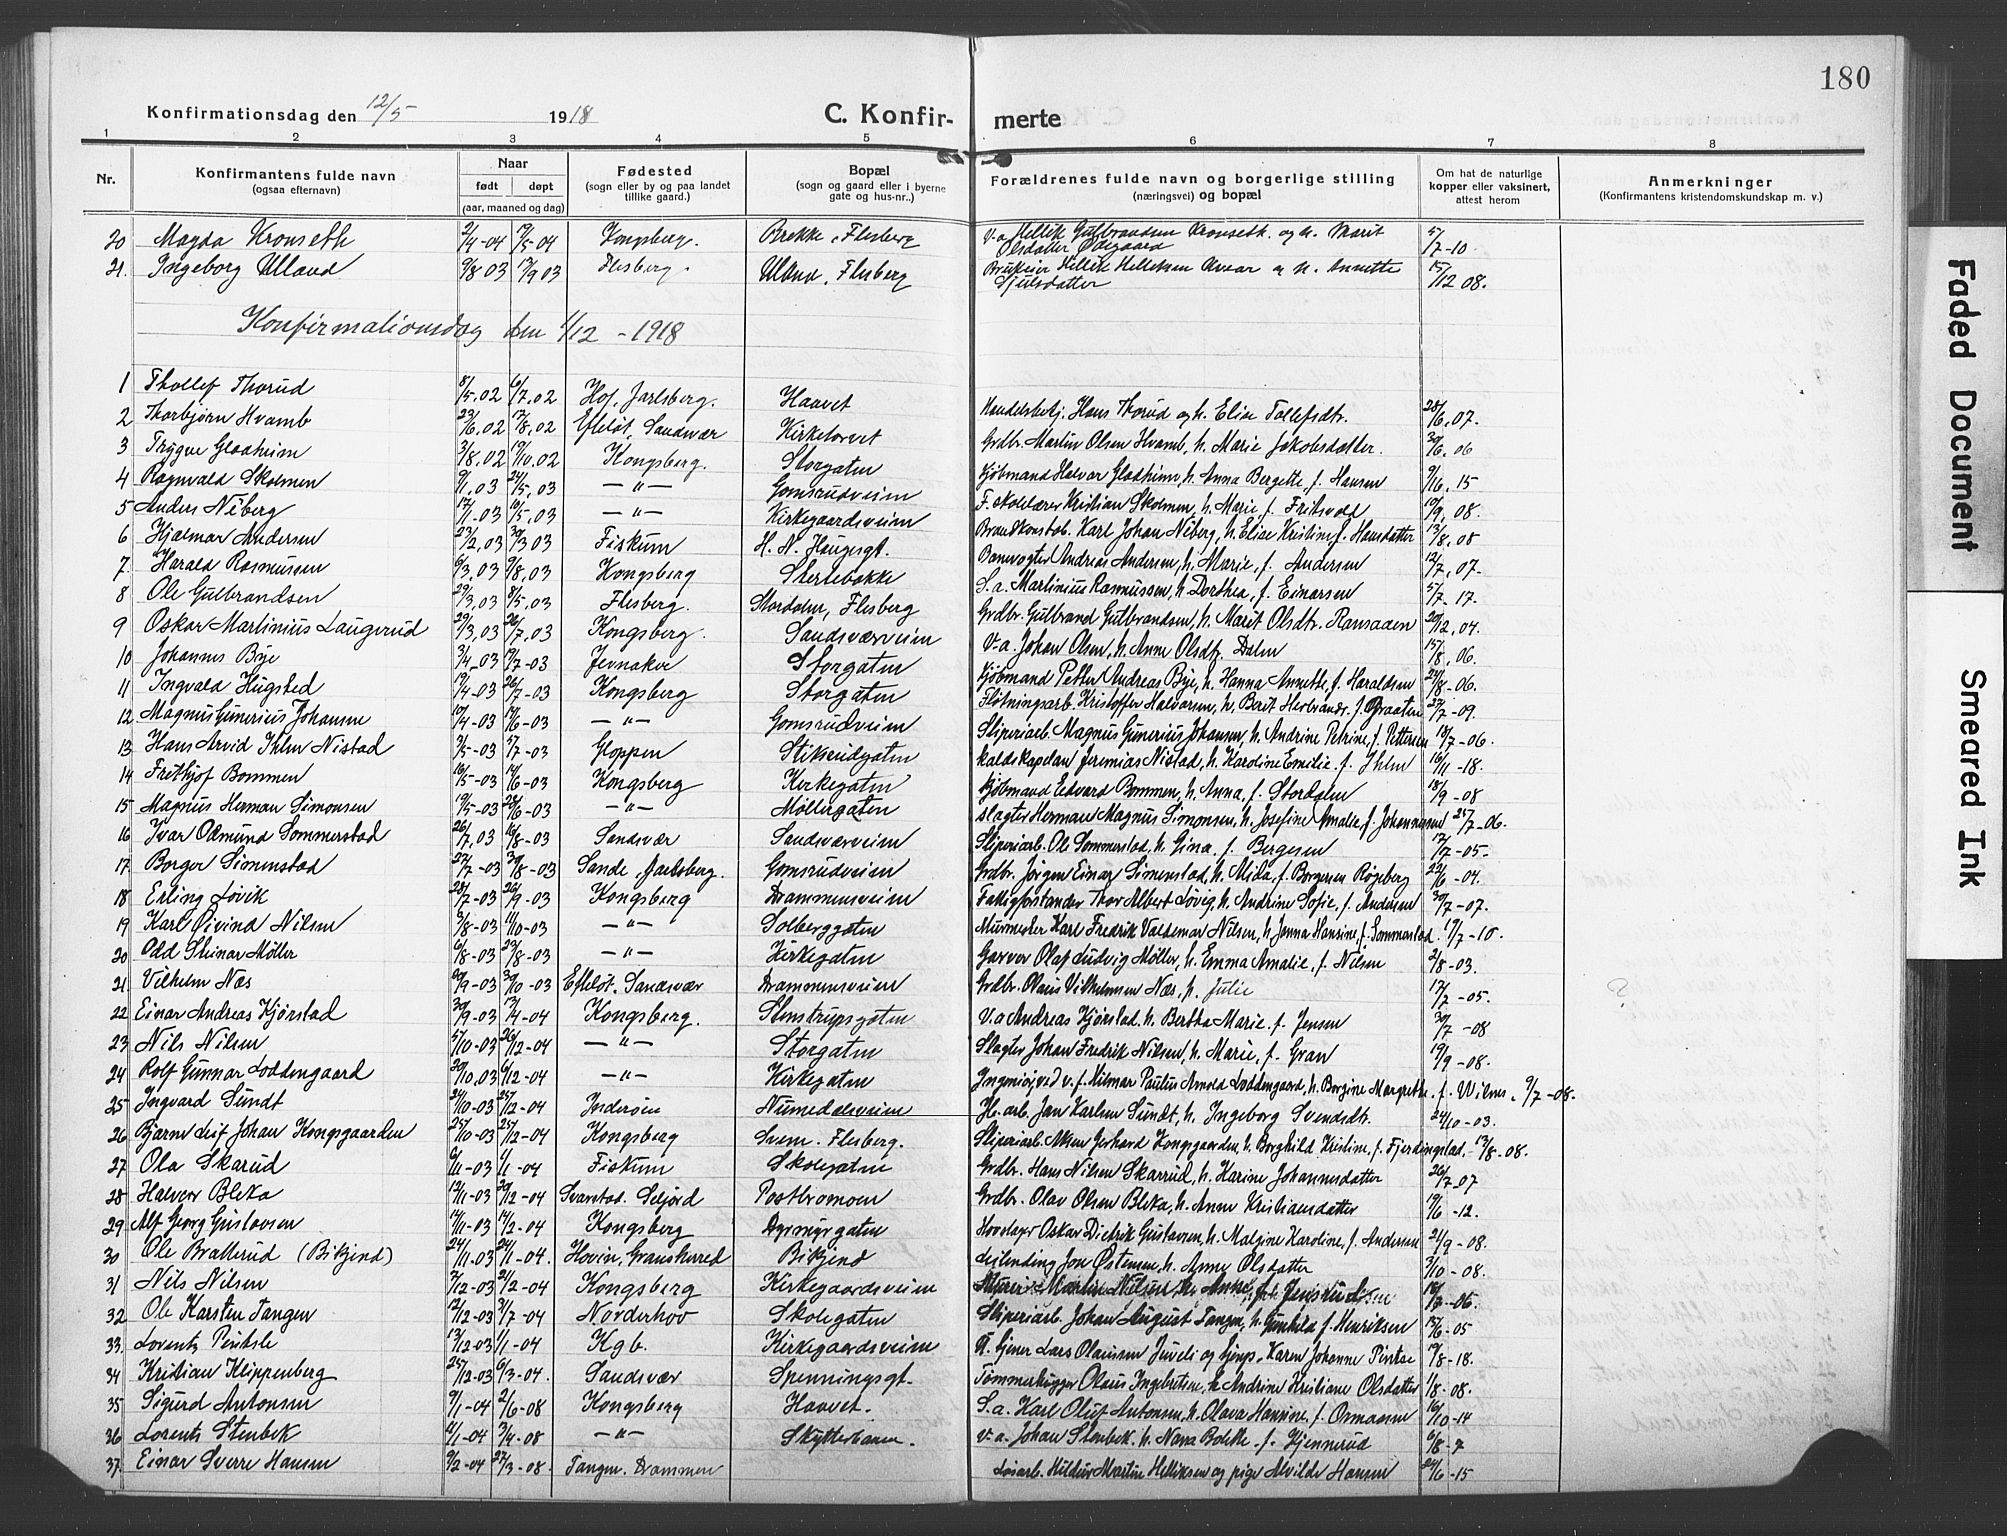 180
Konfirmationsdag den 12/5 1918 C. Konfir- merte
1 2 3 4 5 6 7 8
Nr. Konfirmantens fulde navn (ogsaa efternavn) Naar født døpt (aar, maaned og dag) Fødested (sogn eller by og paa landet tillike gaard.) Bopæl (sogn og gaard eller i byerne gate og hus-nr.) Forældrenes fulde navn og borgerlige stilling (næringsvei) og bopæl Om hat de naturlige kopper eller vaksinert, attest herom Anmerkninger (Konfirmantens kristendomskundskap m. v.)
20 Magda Kronseth 2/4-04 19/5-04 Kongsberg. Brekke, Flesberg V.a. Hellik Gulbrandsen Kronseth og h. Marit Olsdatter Ødegaard 5/7-10
21. Ingeborg Ulland 9/8 03 13/9 03 Flesberg. Ulland, Flesberg Hellik Helleksen og h. Annette Sjulsdatter 15/12 08.
Konfirmationsdag den 1/12 - 1918
1 Thollef Thorud 8/5.02 6/7.02 Hof, Jarlsberg. Haavet Hans Thorud og h. Elise Tollefsdtr. 28/6.07.
2 Thorbjørn Hvamb 23/6.02 17/8.02 Efteløt, Sandsvær Kirketorvet Grdbr. Martin Olsen Hvamb, h. Marie Jakobsdatter. 30/6.06
3 Trygve Gladheim 3/8.02 19/10.02 Kongsberg. Storgaten Kjøbmand Halvor Gladheim, h. Anna Bergette, f. Hansen 15
4 Ragnvald Skolmen 9/1.03 24/5.03 —"— Gomsrudveien F. skolelærer Kristian Skolmen, h. Marie, f. Fritsvold 10/9.08.
5 Anders Niberg 17/1.03 10/5.03 —"— Kirkegaardsveien Brandkonstab. Karl Johan Niberg, h. Elise Kristine, f. Hansdatter 13/8.08
6 Hjalmar Andersen 23/2.03 30/3 03 Fiskum H. N. Haugesgt. Banevogter Andreas Andersen, h. Marie, f. Andersen 12/7.07.
7. Harald Rasmussen 6/3.03 9/8.03 Kongsberg Stertebakke S.a. Martinius Rasmussen, h. Dorthea, f. Einarsen 5/7.17.
8 Ole Gulbrandsen 29/3.03 8/5.03 Flesberg. Stordalen, Flesberg Grdbr. Gulbrand Gulbrandsen, h. Marit Olsdtr. Ramsaasen 20/12.04.
9 Oskar Martinius Laugerud 29/3.03 26/7.03 Kongsberg. Sandsværveien V.a. Johan Olsen, h. Anne Olsdtr. Dalen 15/8.06.
10 Johannes Bye 3/4-03 19/7-03 Jevnaker Storgaten Kjøbmand Petter Andreas Bye, h. Hanna Annette, f. Haraldsen 24/8-06.
11 Ingvald Hugsted 19/4-03 26/7-03 Kongsberg Storgaten Fløtningsarb. Kristoffer Halvorsen, h. Berit Herbrandsd. f. Braaten 27/7-09.
12 Magnus Gunerius Johansen 10/4-03 14/6-03 —"— Gomsrudveien Sliperiarb. Magnus Gunerius Johansen, h. Andrine Petrine, f. Pettersen 18/7-06.
13. Hans Arvid Ihlen Nistad 3/5-03 5/7-03 Gloppen Stiksrudgaten Kaldskapelan Jeremias Nistad, h. Karoline Emilie, f. Ihlen 16/11-18.
14 Frithjof Bommen 16/5-03 14/6-03 Kongsberg Kirkegaten Kjøbmand Edvard Bommen, h. Anna, f. Stordalen 18/9-08
15. Magnus Herman Simonsen 19/5-03 28/6-03 —"— Møllergaten Slagter Herman Magnus Simonsen, h. Josefine Amalie, f. Johannesen 25/7-06.
16 Ivar Osmund Sommerstad 26/7.03 16/8-03 Sandsvær Sandsværveien Sliperiarb. Ole Sommerstad, h. Gina, f. Bergesen 17/7-05.
17. Borger Simenstad 27/7-03 30/8-03 Sande, Jarlsberg. Gomsrudveien Grdbr. Jørgen Einar Simenstad, h. Mida, f. Borgersen Røgeberg 22/6-04.
18 Erling Løvik 28/7-03 20/9-03 Kongsberg Drammensveien Fattigforstander Thor Albert Løvig, h. Andrine Sofie, f. Andersen 30/7-07.
19 Karl Øivind Nilsen 3/8-03 11/10-03 —"— Solberggaten Murmester Karl Fredrik Valdemar Nilsen, h. Jenna Hansine, f. Sommerstad. 9/7-10.
20 Odd Steinar Møller 6/8-03 23/8-03 —"— Kirkegaten Garver Olaf Ludvig Møller, h. Emma Amalie, f. Nilsen 21/8-03.
21. Vilhelm Næs 20/9-03 30/10-03 Efteløt, Sandsvær Drammensveien Grdbr. Olaus Vilhelmsen Næs, h. Julie 17/7-05. ?
22 Einar Andreas Kjørstad 30/9-03 13/4-04 Kongsberg. Stenstrupsgaten V.a Andreas Kjørstad, h. Bertha Marie, f. Jensen 30/7-08
23. Nils Nilsen 5/10-03 26/12-04 —"— Storgaten Slagter Johan Fredrik Nilsen, h. Marie, f. Gran 19/9-08.
24 Rolf Gunnar Loddengaard 20/10.03 6/12-04 —"— Kirkegaten Ingeniør ved v.f. Hilmar Paulus Arnold Loddengaard, h. Borgine Margrethe, f. Wilner. 9/7-08.
25. Ingvard Sundt 24/10-03 25/12-04 Inderøen Numedalsveien Jb. arb. Jan Karlsen Sundt, h. Ingeborg Svendsdtr. 24/10-03.
26 Bjarne Leif Johan Kongsgaarden 25/10-03 25/12-04 Kongsberg Svem. Flesberg. Sliperiarb. Aksen Gerhard Kongsgaarden, h. Borghild Kristine, f. Fjerdingstad. 13/8-08.
27. Ola Skarud 6/11-03 1/1-04 Fiskum Skolegaten Grdbr. Hans Nilsen Skarrud, h. Karine Johannesdatter 26/7-07
28 Halvor Bleka 12/11-03 20/12-04 Svartdal. Seljord Postbromoen Grdbr. Olav Olsen Bleka, h. Anne Kristiansdatter 19/6-12.
29. Alf Georg Gustavsen 14/11-03 14/2-04 Kongsberg Dyrmyrgaten Hovslager Oskar Diedrik Gustavsen, h. Malgine Karoline, f. Andersen 21/9-08.
30 Ole Bratterud (Bikjend) 24/11.03 24/1-04. Hovin, Gransherred Bikjend Leilending Jon Østensen, h. Anne Olsdatter 3/10-08.
31 Nils Nilsen 7/12-03 21/2-04 Kongsberg Kirkegaardsveien Murer Martin Nilsen, h. Anna 18/7-06.
32. Ole Karsten Tangen 12/12-03 3/7-04 Norderhov Skolegaten Sliperiarb. Johan August Tangen, h. Gunhild, f. Henriksen 15/6-05
33. Lorentz Pintsle 13/12.03 1/1-04 Kgb. Kirkegaardsveien Lars Olaussen Juveli og Karen Johanne Pintse 19/8-18.
34 Kristian Klippenberg 25/12-03 6/3-04. Sandsvær Spenningsgt. Tømmerhugger Olaus Ingebretsen, h. Andrine Kristiane Olsdatter 1/8-08.
35 Sigurd Antonsen 9/1-04 2/6-08 Kongsberg Haavet. S.a. Karl Oluf Antonsen, h. Olava Hansine, f. Ormaasen 16/10-14
36 Lorents Stenbek 11/1-04 3/4-08 —"— Skytterbanen. V.a. Johan Stenbek, h. Nana Bolette, f. Kjennerud 6/8-7
37. Einar Sverre Hansen 9/2-04 27/3-08. Tangen. Drammen Løsarb. Hildur Martin Helliksen og pige Alvilde Hansen 24/6-15
Faded Document
Smeared Ink